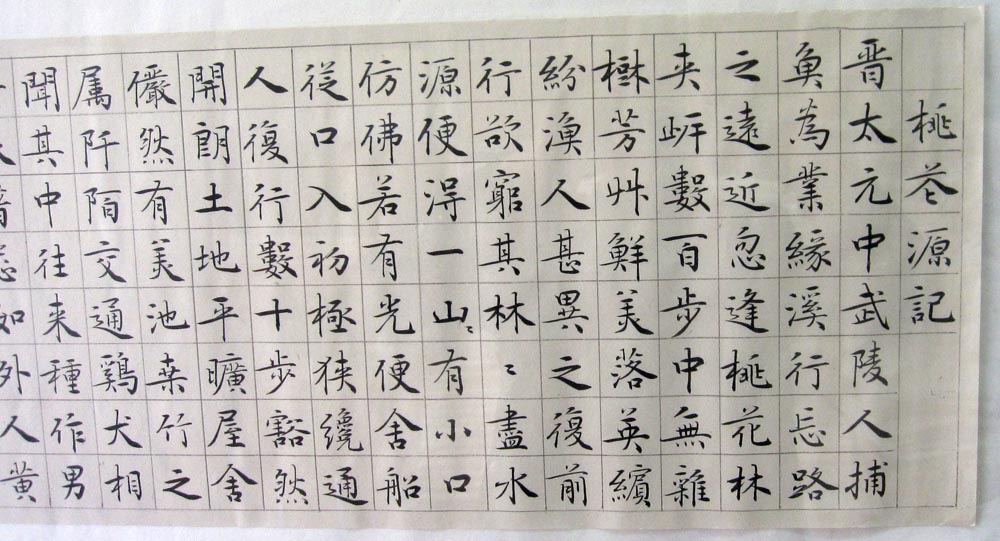 桃花源記
晋太元中武陵人捕
魚為業緣溪行忘路
之遠近忽逢桃花林
夹岸數百步中無雜
樹芳艸鮮美落英繽
紛漁人甚異之復前
行欲窮其林〻盡水
源便得一山〻有小口
仿佛若有光便舍船
從口入初極狭纔通
人復行數十步豁然
開朗土地平曠屋舍
儼然有美池桑竹之
属阡陌交通鷄犬相
聞其中往来種作男
著悉如外人黄